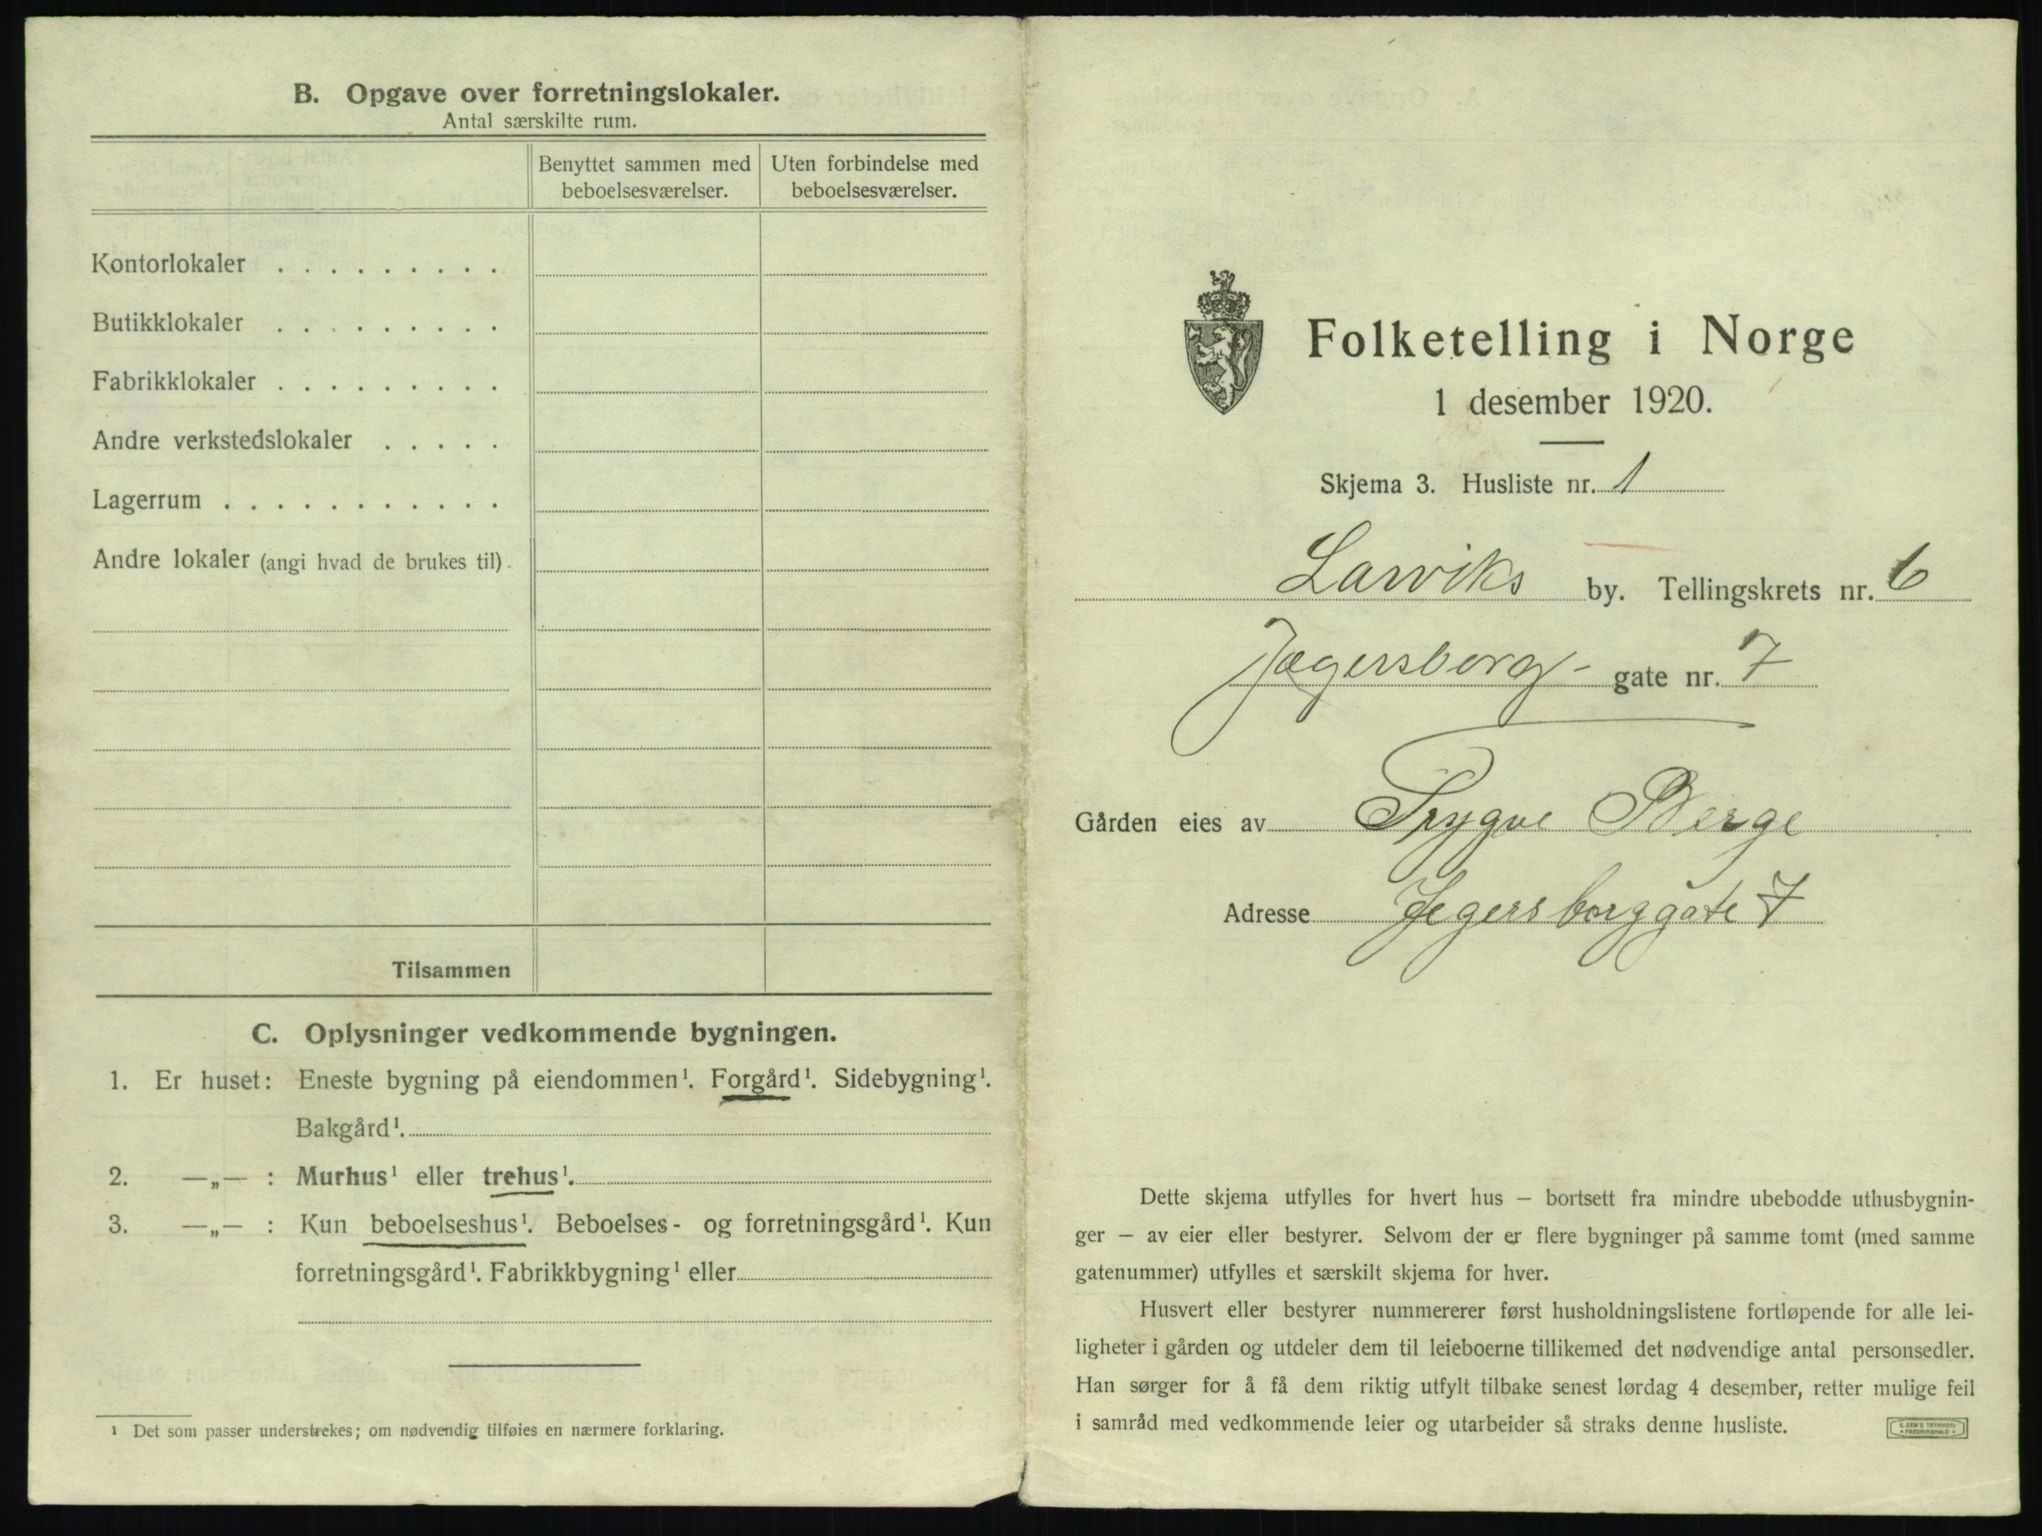 B. Opgave over forretningslokaler.
Antal særskilte rum.
Benyttet sammen med beboelsesværelser.
Uten forbindelse med beboelsesværelser.
Kontorlokaler . . . . . . . . .
Butikklokaler . . . . . . . . .
Fabrikklokaler . . . . . . . . .
Andre verkstedslokaler . . . . .
Lagerrum . . . . . . . . . . .
Andre lokaler (angi hvad de brukes til).
Tilsammen
C. Oplysninger vedkommende bygningen.
1. Er huset: Eneste bygning på eiendommen¹. Forgård¹. Sidebygning¹.
Bakgård¹.
2. —„— : Murhus¹ eller trehus¹.
3. —„— : Kun beboelseshus¹. Beboelses- og forretningsgård¹. Kun
forretningsgård¹. Fabrikkbygning¹ eller
¹ Det som passer understrekes; om nødvendig tilføies en nærmere forklaring.
Folketelling i Norge
1 desember 1920.
Skjema 3. Husliste nr. 1
Larviks by. Tellingskrets nr. 6
Jægersborg- gate nr. 7
Gården eies av Trygve Berge
Adresse Jegersborggate 7
Dette skjema utfylles for hvert hus – bortsett fra mindre ubebodde uthusbygnin-
ger – av eier eller bestyrer. Selvom der er flere bygninger på samme tomt (med samme
gatenummer) utfylles et særskilt skjema for hver.
Husvert eller bestyrer nummererer først husholdningslistene fortløpende for alle lei-
ligheter i gården og utdeler dem til leieboerne tillikemed det nødvendige antal personsedler.
Han sørger for å få dem riktig utfylt tilbake senest lørdag 4 desember, retter mulige feil
i samråd med vedkommende leier og utarbeider så straks denne husliste.
E. SEM'S TRYKKERI
FREDRIKSHALD